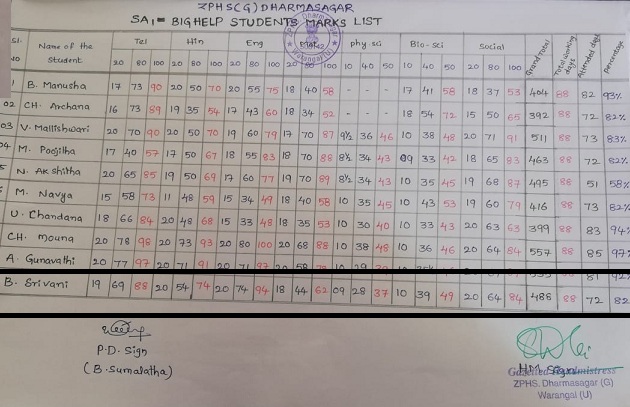 ZPHS(G) DHARMASAGAR
SA1 = BIGHELP STUDENTS MARKS LIST
Sl. no Name of the Student Tel Hin Eng phy.sci Bio-sci Social Grand Total Total working days Attended days Percentage
20 80 100 20 80 100 20 80 100 20 80 100 10 40 50 10 40 50 20 80 100
B. Manusha 17 73 90 20 50 70 20 55 75 18 40 58 - - - 17 41 58 18 37 53 404 88 82 93%
02 CH. Archana 16 73 89 19 35 54 17 43 60 18 34 52 - - - 18 54 72 15 50 65 392 88 72 82%
03 V. Malleshwari 20 70 90 20 50 70 19 60 79 17 70 87 9½ 36 46 10 38 48 20 71 91 511 88 73 83%
04 M. Poojitha 17 40 57 17 50 67 18 55 83 18 70 88 8½ 34 43 09 33 42 18 65 83 463 88 72 82%
N. Akshitha 20 65 85 19 50 69 17 60 77 19 70 89 8½ 34 43 10 35 45 19 68 87 495 88 51 58%
M. Navya 15 58 73 11 48 59 15 34 49 18 40 58 10 35 45 10 43 53 19 60 79 416 88 73 82%
U. Chandana 18 66 84 20 48 68 15 33 48 18 35 53 10 30 40 10 33 43 20 63 63 399 88 83 94%
CH. Mouna 20 78 98 20 73 93 20 80 100 20 68 88 10 38 48 10 36 46 20 64 84 557 88 85 97%
A. Gunavathi 20 77 97 20 71 91 20 71
B. Srivani 19 69 88 20 54 74 20 74 94 18 44 62 09 28 37 10 39 49 20 64 84 488 88 72 82
P.D. Sign
(B. Sumalatha)
HM Sign
Gazetted Headmistress
ZPHS. Dharmasagar (G)
Warangal (U)